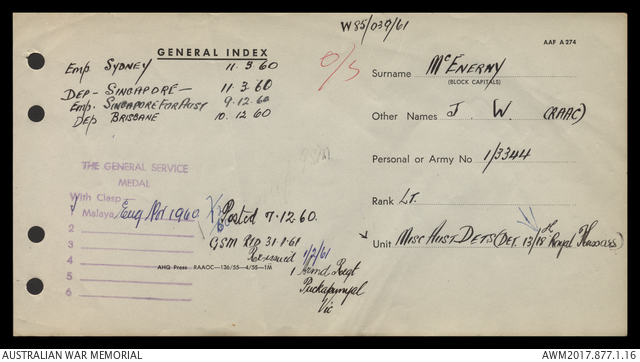 W85/039/61
AAF A274
GENERAL INDEX
O/S
Emp. SYDNEY 11.3.60
DEP - SINGAPORE - 11.3.60
Emp. SINGAPORE FOR AUST 9.12.60
DEP BRISBANE 10.12.60
THE GENERAL SERVICE
MEDAL
With Clasp
1 Malaya Enq Nov 1960
2
3
4
5
6
Posted 7.12.60.
GSM RTD 31.1.61
Reissued 1/2/61
1 Armd Regt
Puckapunyal
Vic
AHQ Press RAAOC—136/55—4/55—1M
Surname McENERNY
(BLOCK CAPITALS)
Other Names J. W. (RAAC)
Personal or Army No 1/3344
Rank LT.
Unit MISC AUST DETS (DET. 13/18 H Royal Hussars)
AUSTRALIAN WAR MEMORIAL
AWM2017.877.1.16